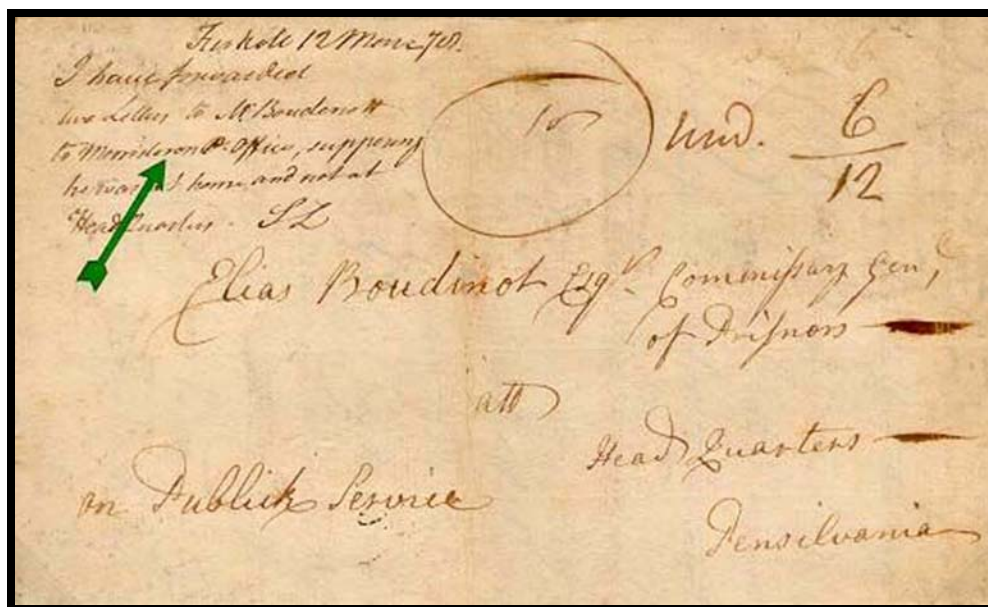 Fishkill 12 March 78.
I have forwarded
two Letters to Mr Boudenott
to Morristown P. Office, supposing
he was at home and not at
Head Quarters. S L
10
Und. 6
12
Elias Boudinot Esqr. Commissary Genl
of Prisners
att
Head Quarters
on Publick Service
Pensilvania